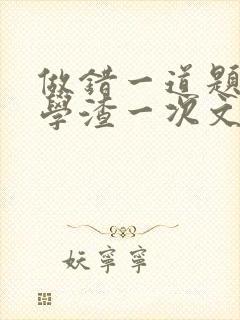 做錯一道題
學渣一次文
妖寧寧